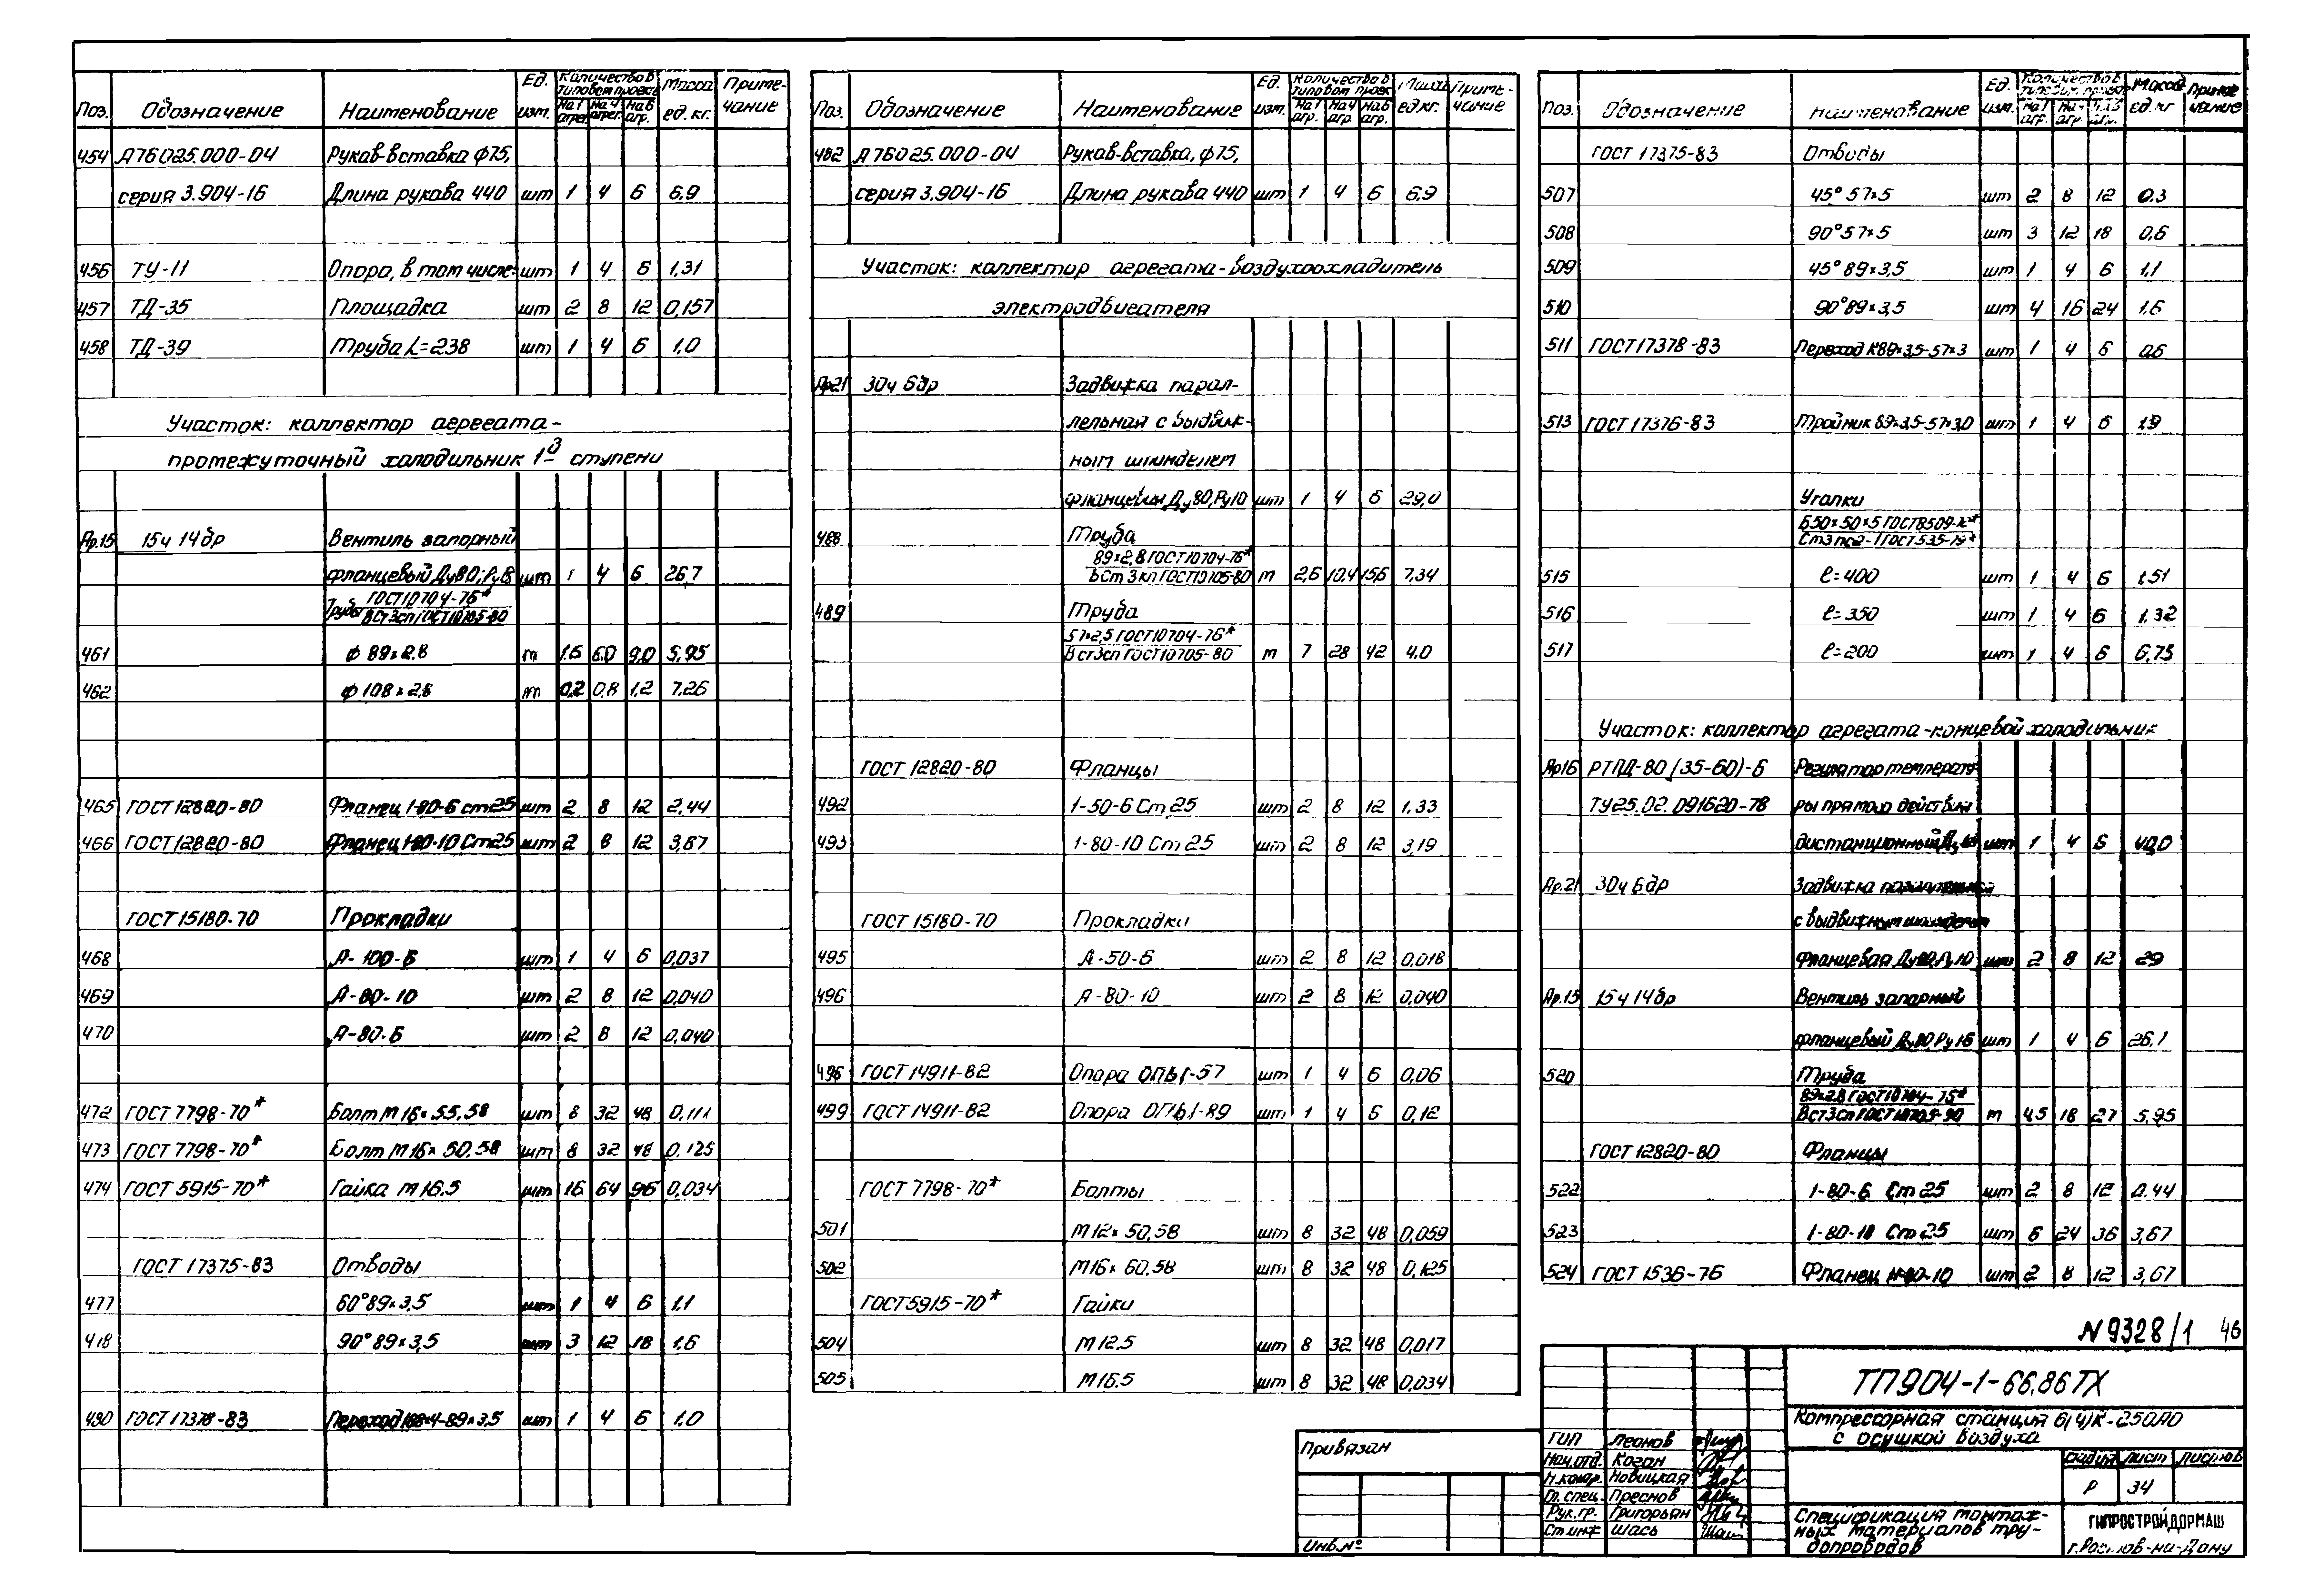 Поз. Обозначение Наименование Ед. изм. Количество в типовом проекте На 1 агрег. На 4 агрег. На 6 агр. Масса ед. кг. Примечание
454 А76025.000-04 Рукав-вставка ф75,
серия 3.904-16 Длина рукава 440 шт 1 4 6 6,9
456 ТУ-11 Опора, в том числе: шт 1 4 6 1,31
457 ТД-35 Площадка шт 2 8 12 0,157
458 ТД-39 Труба L=238 шт 1 4 6 1,0
Участок: коллектор агрегата-
промежуточный холодильник 1й ступени
Ар.15 15ч 14бр Вентиль запорный
фланцевый Ду80; Ру16 шт 1 4 6 26,7
Труба ГОСТ10704-76*
ВСт3сп ГОСТ10705-80
461 ф 89×2,8 м 1,5 6,0 9,0 5,95
462 ф 108×2,8 м 0,2 0,8 1,2 7,26
465 ГОСТ 12820-80 Фланец 1-80-6 ст25 шт 2 8 12 2,44
466 ГОСТ 12820-80 Фланец 1-80-10 Ст25 шт 2 8 12 3,67
ГОСТ 15180-70 Прокладки
468 А-100-6 шт 1 4 6 0,037
469 А-80-10 шт 2 8 12 0,040
470 А-80-6 шт 2 8 12 0,040
472 ГОСТ 7798-70* Болт М16×55.58 шт 8 32 48 0,111
473 ГОСТ 7798-70* Болт М16×60.58 шт 8 32 48 0,125
474 ГОСТ 5915-70* Гайка М16.5 шт 16 64 96 0,034
ГОСТ 17375-83 Отводы
477 60° 89×3,5 шт 1 4 6 1,1
478 90° 89×3,5 шт 3 12 18 1,6
480 ГОСТ 17378-83 Переход 108×4-89×3,5 шт 1 4 6 1,0
Поз. Обозначение Наименование Ед. изм. Количество в типовом проек. На 1 агр. На 4 агр. На 6 агр. Масса ед. кг. Примечание
482 А76025.000-04 Рукав-вставка, ф75,
серия 3.904-16 Длина рукава 440 шт 1 4 6 6,9
Участок: коллектор агрегата-воздухоохладитель
электродвигателя
Ар21 30ч 6бр Задвижка парал-
лельная с выдвиж-
ным шпинделем
фланцевая, Ду80, Ру10 шт 1 4 6 29,0
488 Труба
89×2,8 ГОСТ10704-76*
ВСт 3кп ГОСТ10705-80 м 2,6 10,4 15,6 7,34
489 Труба
57×2,5 ГОСТ10704-76*
ВСт3сп ГОСТ10705-80 м 7 28 42 4,0
ГОСТ 12820-80 Фланцы
492 1-50-6 Ст 25 шт 2 8 12 1,33
493 1-80-10 Ст 25 шт 2 8 12 3,19
ГОСТ 15180-70 Прокладки
495 А-50-6 шт 2 8 12 0,018
496 А-80-10 шт 2 8 12 0,040
ГОСТ 14911-82 Опора ОПБ1-57 шт 1 4 6 0,06
499 ГОСТ 14911-82 Опора ОПБ1-89 шт 1 4 6 0,12
ГОСТ 7798-70* Болты
501 М12×50.58 шт 8 32 48 0,059
502 М16×60.58 шт 8 32 48 0,125
ГОСТ 5915-70* Гайки
504 М12.5 шт 8 32 48 0,017
505 М16.5 шт 8 32 48 0,034
Поз. Обозначение Наименование Ед. изм. Количество в типовом проек. На 1 агр. На 4 агр. На 6 агр. Масса ед. кг Примечание
ГОСТ 17375-83 Отводы
507 45° 57×5 шт 2 8 12 0,3
508 90° 57×5 шт 3 12 18 0,6
509 45° 89×3,5 шт 1 4 6 1,1
510 90° 89×3,5 шт 4 16 24 1,6
511 ГОСТ 17378-83 Переход К89×3,5-57×3 шт 1 4 6 0,6
513 ГОСТ 17376-83 Тройник 89×3,5-57×3,0 шт 1 4 6 1,9
Уголки
Б50×50×5 ГОСТ8509-72*
Ст3пс2-1 ГОСТ535-79*
515 ℓ=400 шт 1 4 6 1,51
516 ℓ=350 шт 1 4 6 1,32
517 ℓ=200 шт 1 4 6 6,75
Участок: коллектор агрегата-концевой холодильник
Ар16 РТПД-80 (35-60)-6 Регулятор температу-
ТУ25.02.091620-78 ры прямого действия
дистанционный, шт 1 4 6 40,0
Ар.21 30ч 6бр Задвижка параллельная
с выдвижным шпинделем
фланцевая Ду80, Ру10 шт 2 8 12 29
Ар.15 15ч 14бр Вентиль запорный
фланцевый Ду80, Ру16 шт 1 4 6 26,1
520 Труба
89×2,8 ГОСТ10704-76*
ВСт3сп ГОСТ10705-80 м 4,5 18 27 5,95
ГОСТ 12820-80 Фланцы
522 1-80-6 Ст 25 шт 2 8 12 0,44
523 1-80-10 Ст 25 шт 6 24 36 3,67
524 ГОСТ 1536-76 Фланец -80-10 шт 2 8 12 3,67
N 9328/1 46
ТП904-1-66.86 ТХ
Компрессорная станция 6(4)К-250А0
с осушкой воздуха
Привязан
Инв.№
ГИП Леонов
Нач.отд. Коган
Н.контр. Новицкая
Гл.спец. Преснов
Рук.гр. Григорьян
Ст.инж Шась
Стадия Лист Листов
Р 34
Спецификация монтаж-
ных материалов тру-
бопроводов
ГИПРОСТРОЙДОРМАШ
г.Ростов-на-Дону